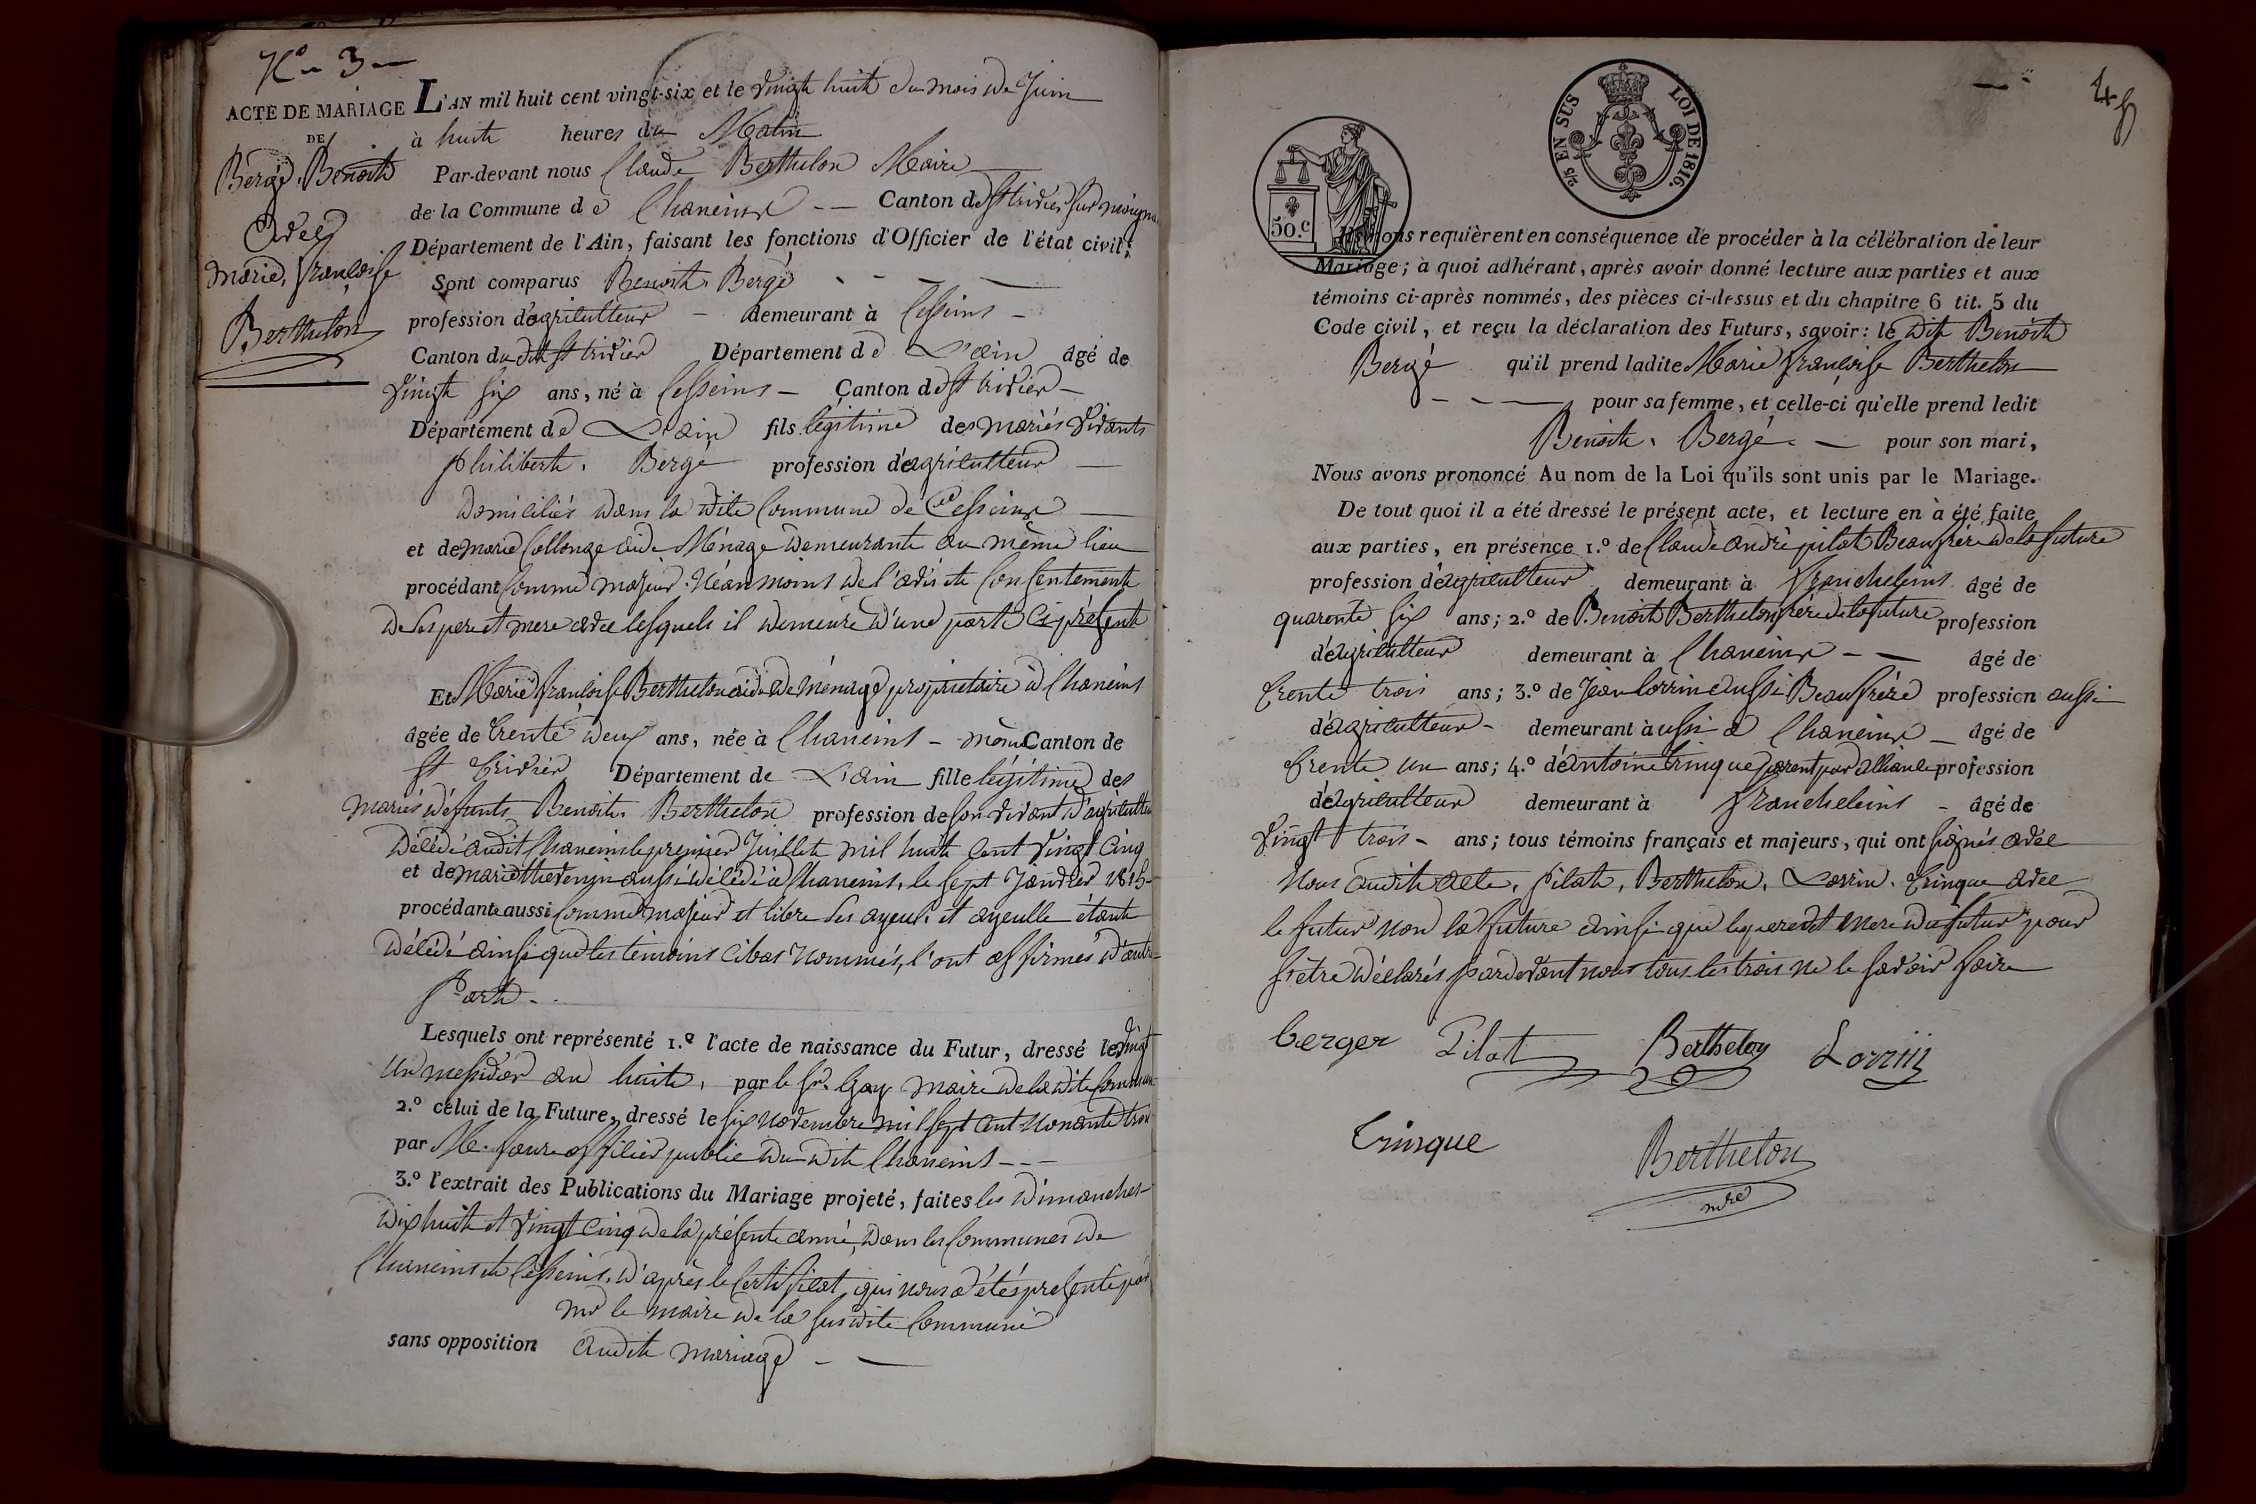 N.o 3
ACTE DE MARIAGE
DE
Bergé Benoith
avec
marie françoise
Berthelon
L'AN mil huit cent vingt-six et le vingt huit du mois de Juin
à huit heures du Matin
Par-devant nous Claude Berthelon Maire
de la Commune de Chaneins Canton de St trivier sur moignans
Département de l'Ain, faisant les fonctions d'Officier de l'état civil;
Sont comparus Benoith Bergé
profession d'agriculteur demeurant à Cesseins
Canton du dit St trivier Département de L'ain âgé de
vingt six ans, né à Cesseins Canton de St trivier
Département de L'ain fils légitime des mariés vivants
philibert Bergé profession d'agriculteur
domiciliés dans la dite Commune de Cesseins
et de marie Collonge aide Ménage demeurante au même lieu
procédant comme majeur Néanmoins de l'avis et consentement
de ses pere et mere avec lesquels il demeure d'une part ci présent
Et Marie françoise Berthelon aide de ménage propriétaire à Chaneins
âgée de trente deux ans, née à Chaneins même Canton de
St trivier Département de L'ain fille légitime des
mariés défunts Benoith Berthelon profession de son vivant d'agriculteur
décédé audit Chaneins le premier Juillet mil huit cent vingt cinq
et de marie thevenin aussi décédé à Chaneins, le sept Janvier 1815
procédante aussi comme majeur et libre ses ayeuls et ayeulle étant
décédé ainsi que les témoins cibas nommés, l'ont affirmés d'autre
part
Lesquels ont représenté 1.º l'acte de naissance du Futur, dressé le vingt
un messidor an huit, par le Sr. Gay maire de la dite Commune
2.º celui de la Future, dressé le six novembre mil sept cent nonante trois
par Me. faure officier public du dit Chaneins
3.º l'extrait des Publications du Mariage projeté, faites les dimanches
dix huit et vingt cinq de la présente année, dans les Communes de
Chaneins et Cesseins, d'après le Certificat qui nous a étés presenté par
mr le maire de la susdite Commune
sans opposition audit mariage
2/5 EN SUS LOI DE 1816.
50.c
Ils nous requièrent en conséquence de procéder à la célébration de leur
Mariage; à quoi adhérant, après avoir donné lecture aux parties et aux
témoins ci-après nommés, des pièces ci-dessus et du chapitre 6 tit. 5 du
Code civil, et reçu la déclaration des Futurs, savoir: le dit Benoith
Bergé qu'il prend ladite Marie françoise Berthelon
pour sa femme, et celle-ci qu'elle prend ledit
Benoith Bergé pour son mari,
Nous avons prononcé Au nom de la Loi qu'ils sont unis par le Mariage.
De tout quoi il a été dressé le présent acte, et lecture en à été faite
aux parties, en présence 1.º de Claude andré pilat Beaufrère de la future
profession d'agriculteur demeurant à francheleins âgé de
quarente six ans; 2.º de Benoith Berthelon frère de la future profession
d'agriculteur demeurant à Chaneins âgé de
trente trois ans; 3.º de Jean Lorrin aussi Beaufrère profession aussi
d'agriculteur demeurant à ussi à Chaneins âgé de
trente un ans; 4.º d'antoine trinque parent par alliance profession
d'agriculteur demeurant à francheleins âgé de
vingt trois ans; tous témoins français et majeurs, qui ont signés avec
nous audit acte, pilat, Berthelon, Lorrin, trinque avec
le futur non la future ainsi que le pere et mere du futur pour
s'être déclarés pardevant nous tous les trois ne le savoir faire
berger Pilat Berthelon Lorrin
trinque Berthelon
mre